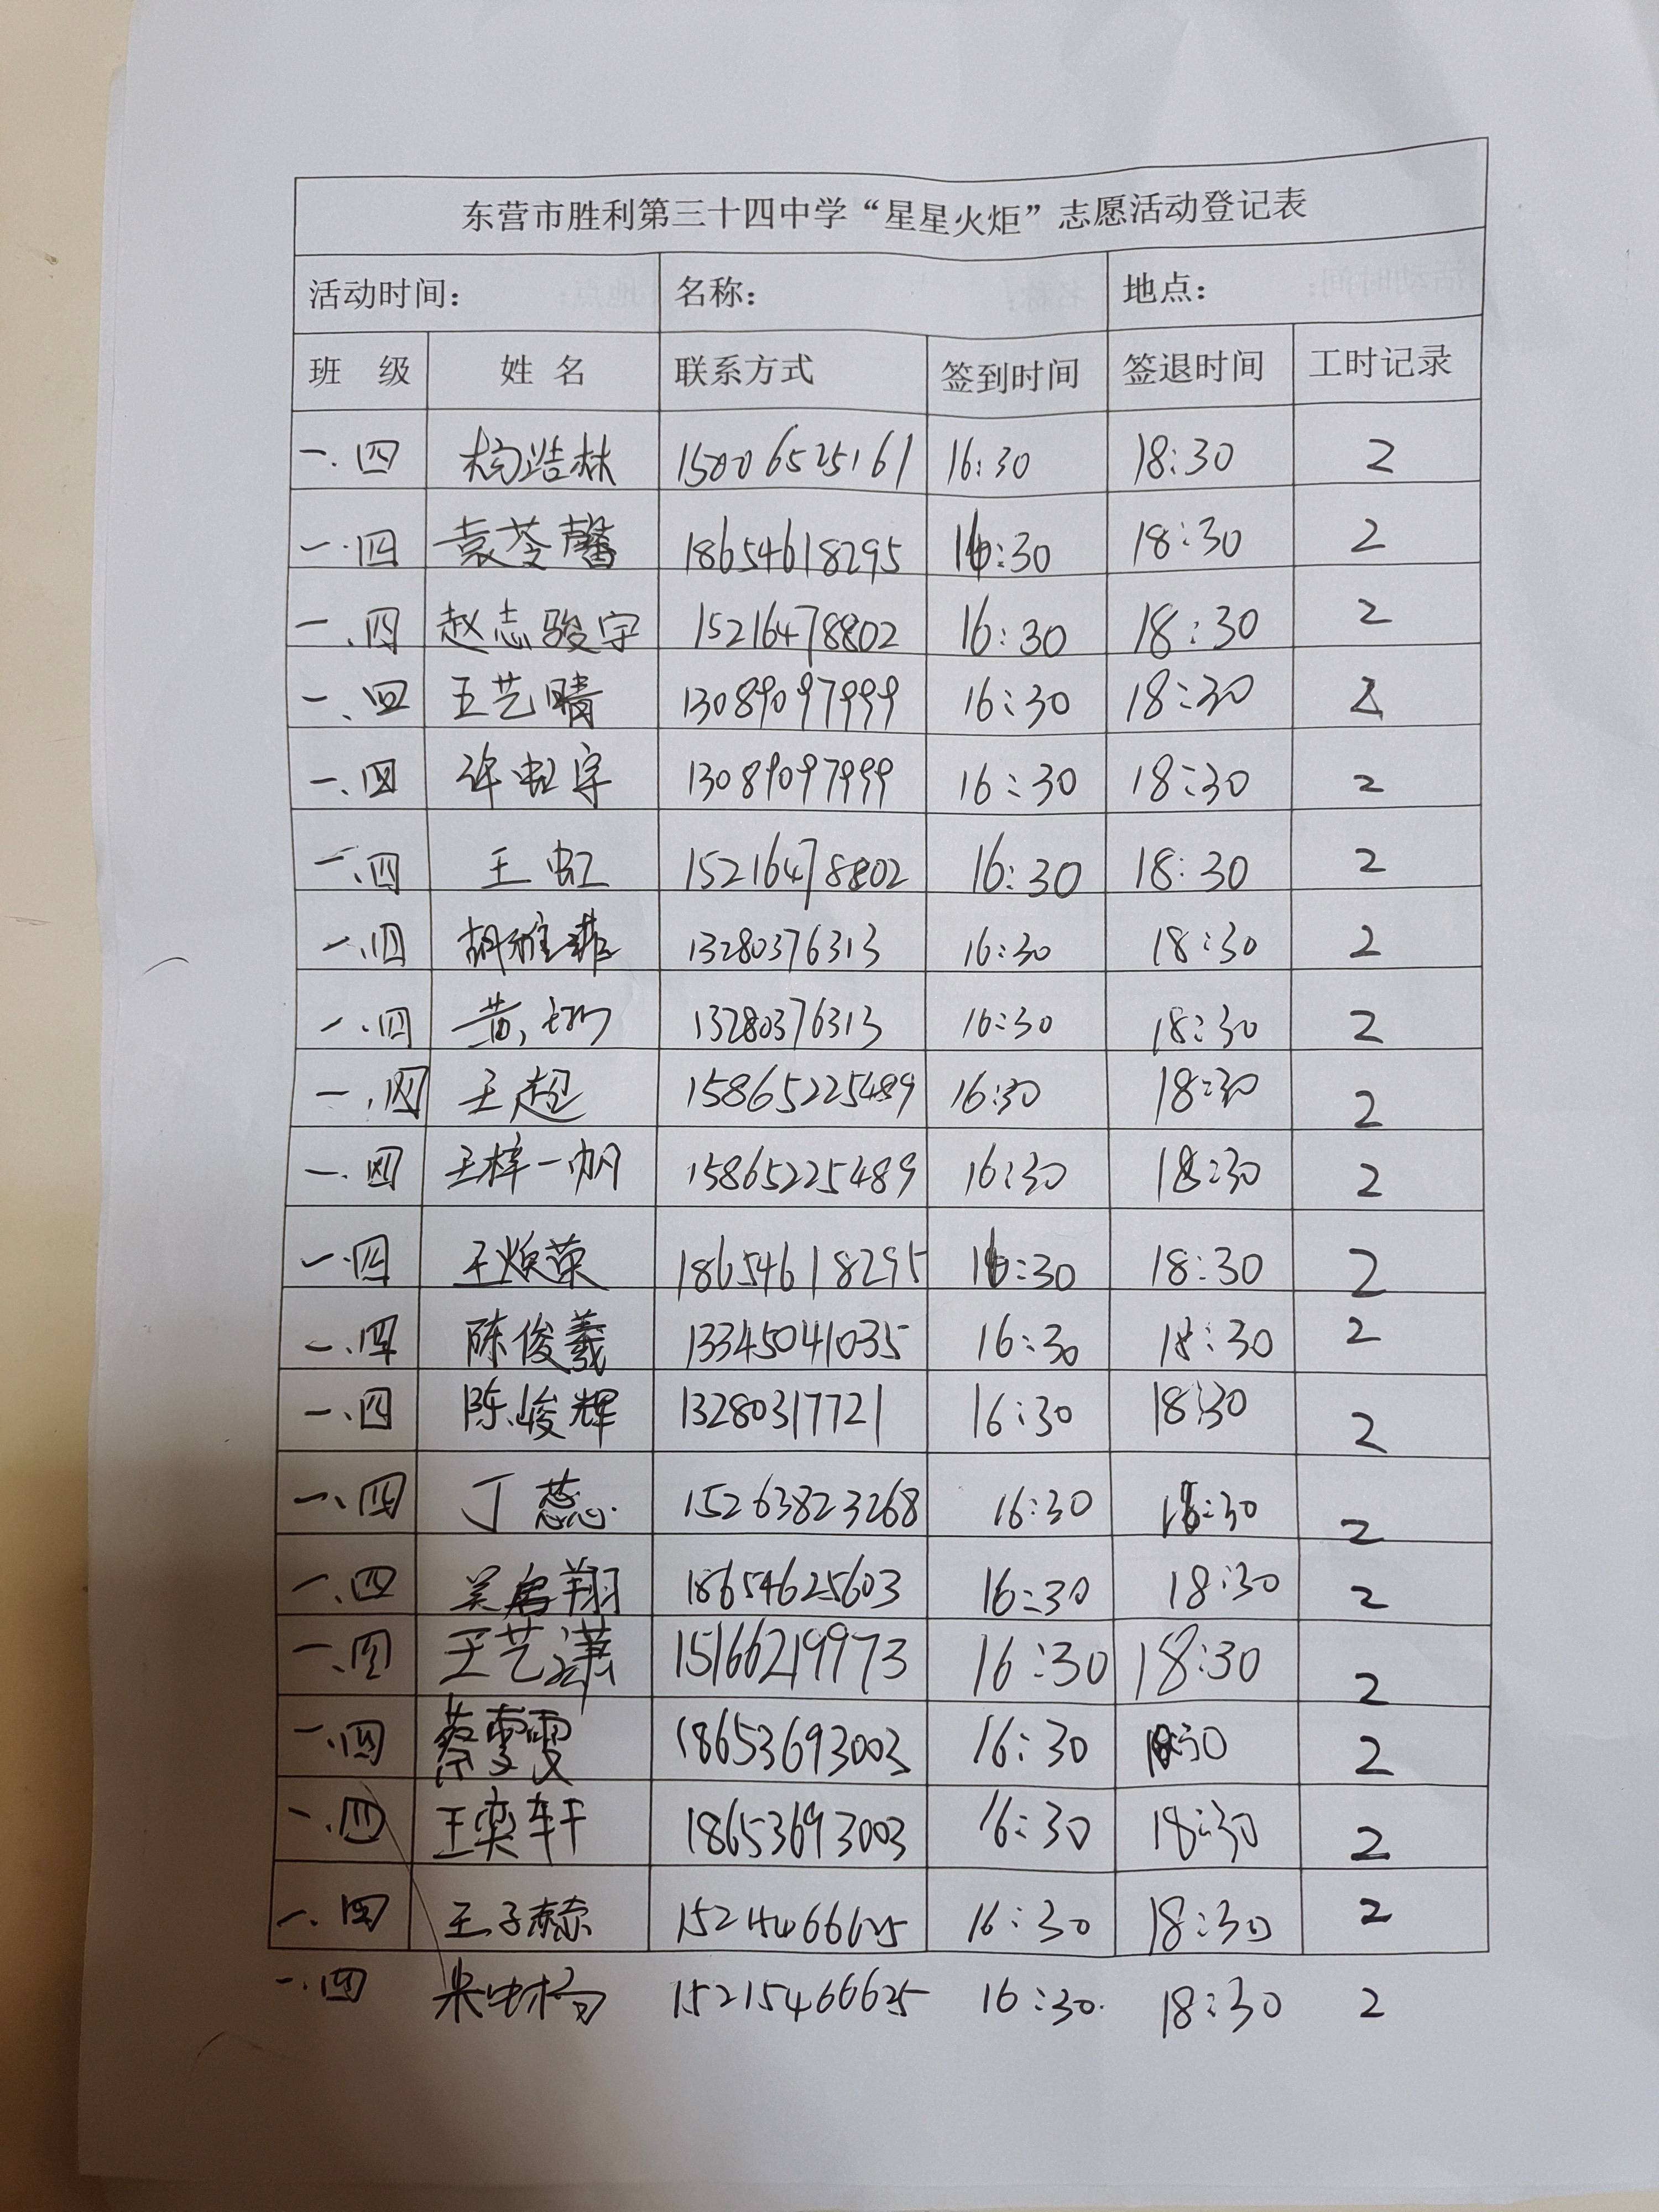 东营市胜利第三十四中学“星星火炬”志愿活动登记表
活动时间： 名称： 地点：
班 级 姓 名 联系方式 签到时间 签退时间 工时记录
一.四 杨浩林 15006525161 16:30 18:30 2
一.四 袁苓馨 18654618295 16:30 18:30 2
一.四 赵志骏宇 15216478802 16:30 18:30 2
一.四 王艺晴 13089097999 16:30 18:30 2
一.四 许虹宇 13089097999 16:30 18:30 2
一.四 王虹 15216478802 16:30 18:30 2
一.四 胡雅菲 13280376313 16:30 18:30 2
一.四 黄 13280376313 16:30 18:30 2
一.四 王超 15865225489 16:30 18:30 2
一.四 王梓一帆 15865225489 16:30 18:30 2
一.四 王焕荣 18654618295 16:30 18:30 2
一.四 陈俊羲 13345041035 16:30 18:30 2
一.四 陈峻辉 13280317721 16:30 18:30 2
一.四 丁蕊 15263823268 16:30 18:30 2
一.四 吴启翔 18654625603 16:30 18:30 2
一.四 王艺潇 15166219973 16:30 18:30 2
一.四 蔡雯雯 18653693003 16:30 18:30 2
一.四 王奕轩 18653693003 16:30 18:30 2
一.四 王子 16:30 18:30 2
一.四 15215466625 16:30 18:30 2